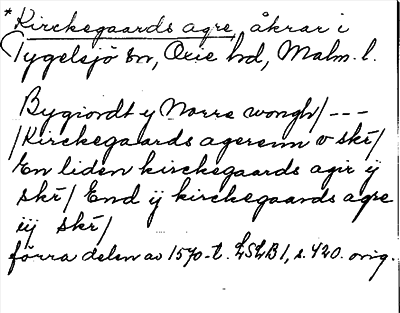 *Kirckegaards agre, åkrar i
Tygelsjö sn, Oxie hd, Malm. l.
Bygiordt y Norre wongh/ ---
/Kirckegaards agerenn v skr/
En liden kirckegaards agir ij
skr/ End ij kirckegaards agre
iij skr/
förra delen av 1570-t. LSLB1, s. 420. orig.